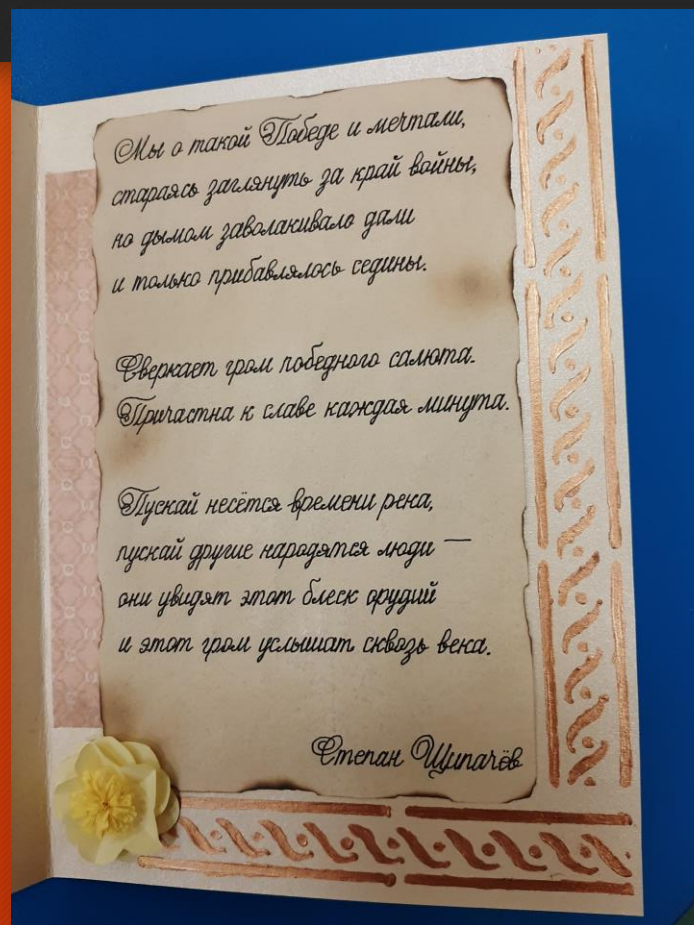 Мы о такой Победе и мечтали,
стараясь заглянуть за край войны,
но дымом заволакивало дали
и только прибавлялось седины.
Сверкает гром победного салюта.
Причастна к славе каждая минута.
Пускай несётся времени река,
пускай другие народятся люди —
они увидят этот блеск орудий
и этот гром услышат сквозь века.
Степан Щипачёв